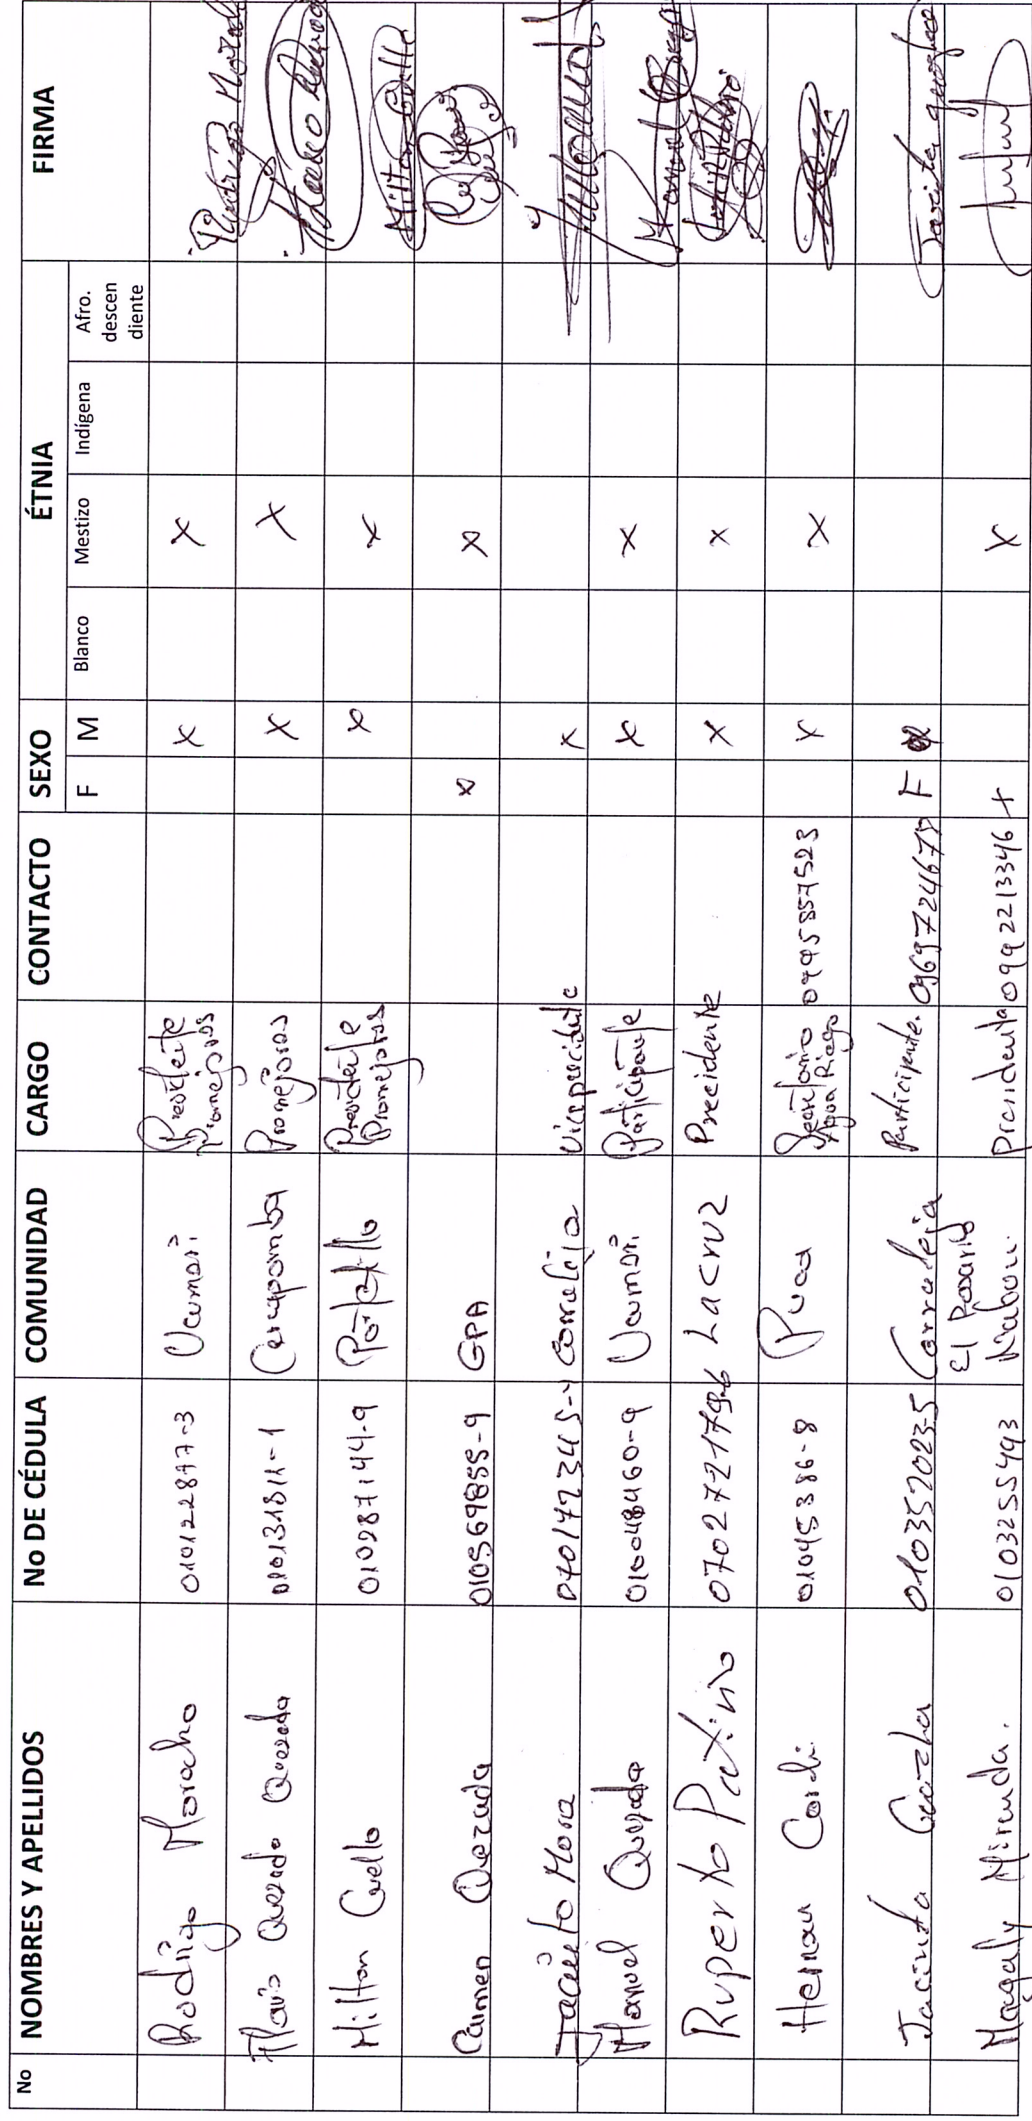 No NOMBRES Y APELLIDOS No DE CÉDULA COMUNIDAD CARGO CONTACTO SEXO ÉTNIA FIRMA
F M Blanco Mestizo Indígena Afro. descen diente
Rodrigo Morocho 010122877-3 Uzmari Presidente Promejoras X X Rodrigo Moroch
Flavio Quezada Quezada 010131811-1 Promejoras X X
Milton Cuello 010287144-9 Portetillo Presidente Promejoras X X Milton Cuello
Carmen Quezada 010569855-9 GPA X X
Jacinto Mora 0701472345-4 Correleja Vicepresidente X
Manuel Quezada 010048460-9 Uzmari Participante X X Manuel Quezada
Ruperto Patiño 070272179-6 La Cruz Precidente X X
Hernan Cardi 01045386-8 Puca Secretario Agua Riego 0995857523 X X
Jacinta 010352023-5 Corraleja Participante. 0969724678 F
Magaly Miranda. 0103255493 El Rosario Nabon. Presidenta 0992213346 X X